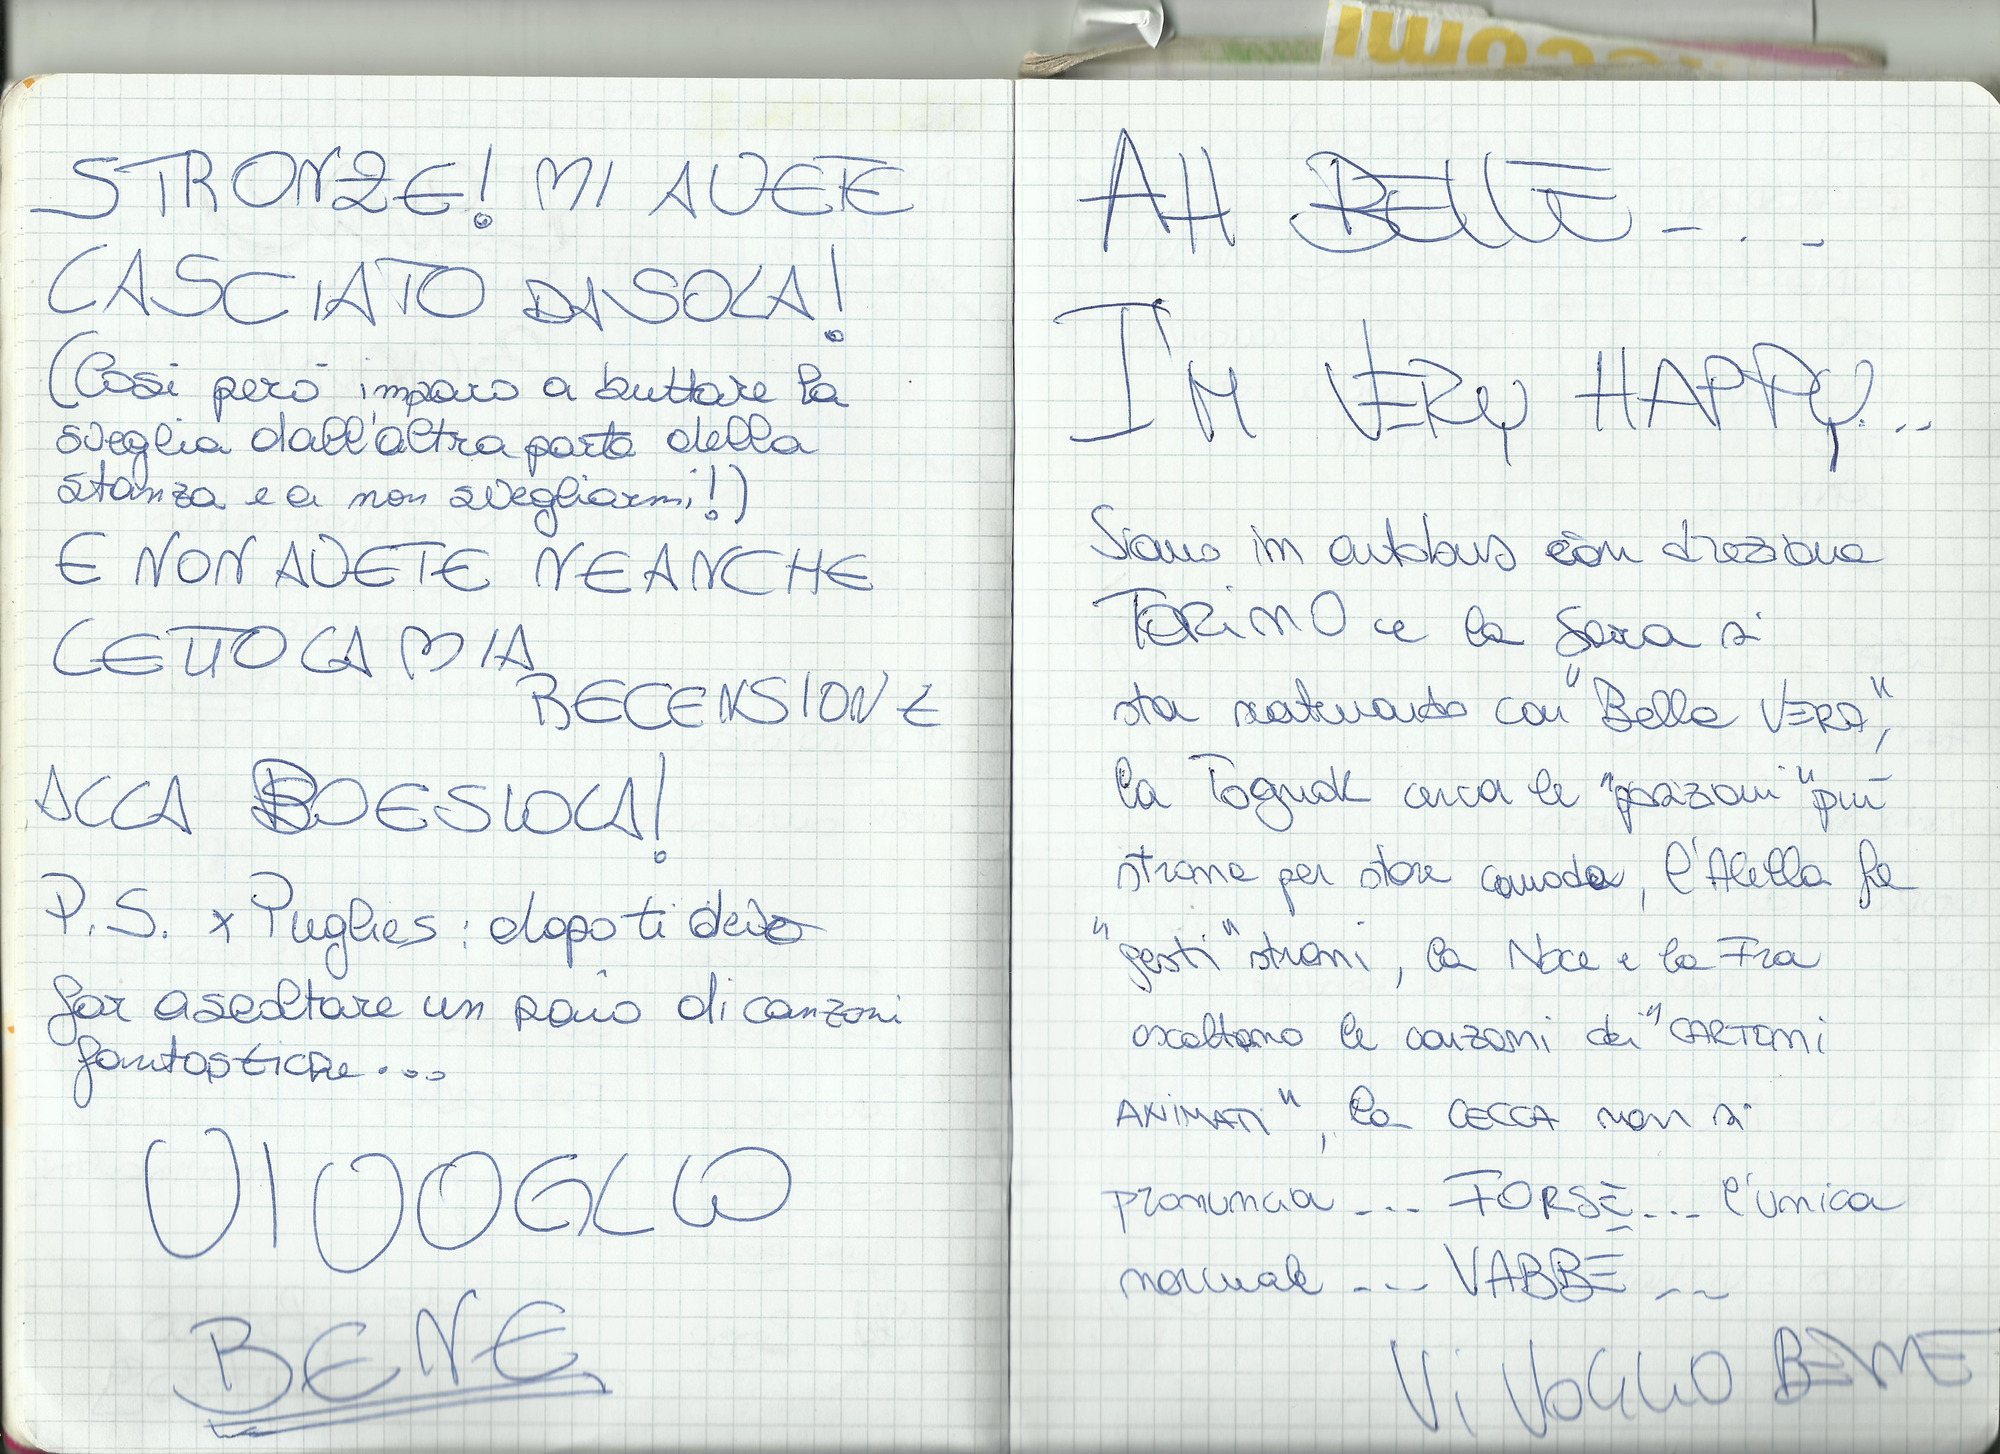 STRONZE! MI AVETE
LASCIATO DA SOLA!
(Così però imparo a buttare la
sveglia dall'altra parte della
stanza e a non svegliarmi!)
E NON AVETE NEANCHE
LETTO LA MIA
RECENSIONE
ALLA BOESIOLA!
P.S. x Puglies: dopo ti devo
far ascoltare un paio di canzoni
fantastiche...
VI VOGLIO
BENE
AH BELLE....
I'M VERY HAPPY...
Siamo in autobus con direzione
TORINO e la Sara si
sta scatenando con "Bella VERA",
la Tognok cerca le "posizioni" più
strane per stare comoda, l'Alella fa
"gesti" strani, la Noce e la Fra
ascoltano le canzoni dei "CARTONI
ANIMATI", la CECCA non si
pronuncia ... FORSE ... l'unica
normale ... VABBÈ ...
VI VOGLIO BENE
ccomi